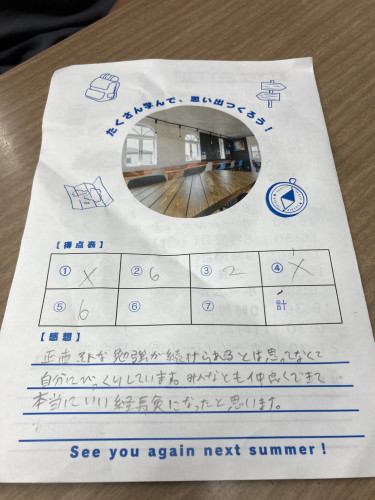 たくさん学んで、思い出つくろう！
【得点表】
① X ② 6 ③ 2 ④ X
⑤ 6 ⑥ ⑦ 計
【感想】
正直 勉強が続けられるとは思ってなくて
自分にびっくりしています。みんなとも仲良くできて
本当にいい経験になったと思います。
See you again next summer!